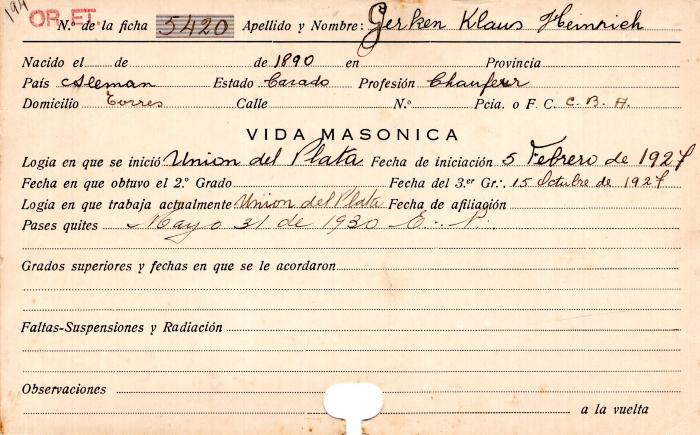 194
OR. ET.
N.º de la ficha 5420 Apellido y Nombre: Gerken Klaus Heinrich
Nacido el de de 1890 en Provincia
País Aleman Estado Casado Profesión Chaufeur
Domicilio Torres Calle N.º Pcia. o F. C. C. B. A.
VIDA MASONICA
Logia en que se inició Union del Plata Fecha de iniciación 5 Febrero de 1927
Fecha en que obtuvo el 2.º Grado Fecha del 3.er Gr∴ 15 Octubre de 1927
Logia en que trabaja actualmente Union del Plata Fecha de afiliación
Pases quites Mayo 31 de 1930
Grados superiores y fechas en que se le acordaron
Faltas-Suspensiones y Radiación
Observaciones
a la vuelta